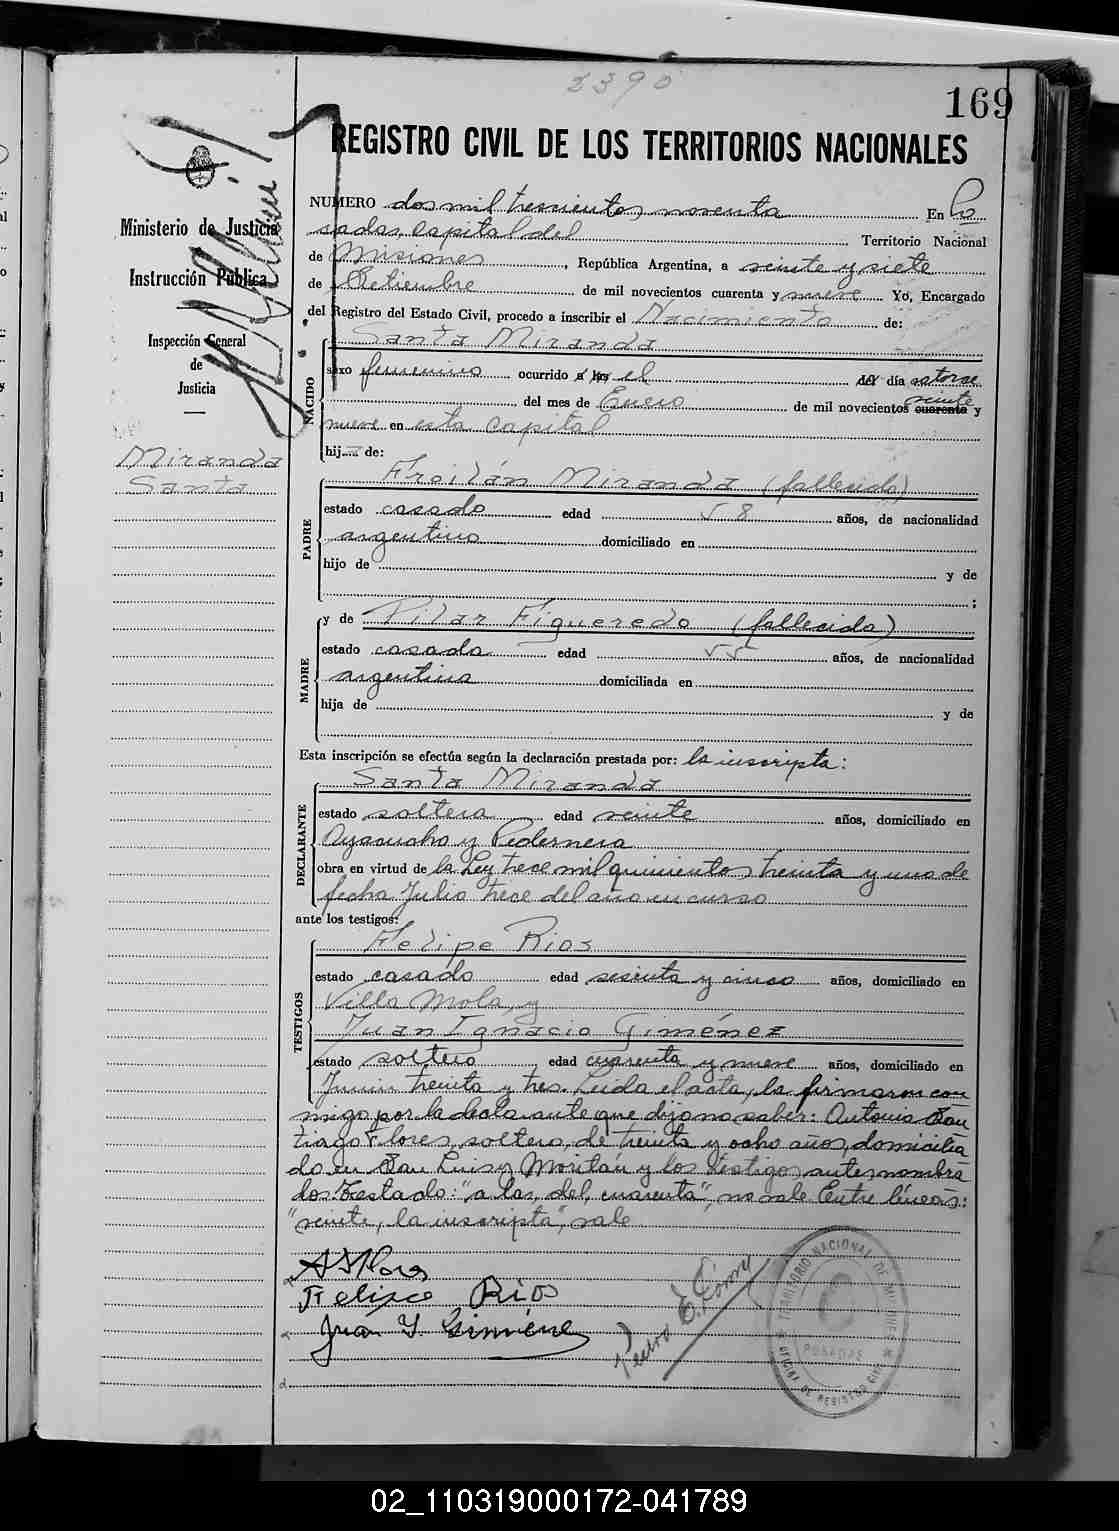 2390
169
REGISTRO CIVIL DE LOS TERRITORIOS NACIONALES
Ministerio de Justicia
Instrucción Pública
Inspección General
de
Justicia
Miranda
Santa
NUMERO dos mil trescientos noventa En Po
sadas, Capital del Territorio Nacional
de Misiones, República Argentina, a veinte y siete
de Setiembre de mil novecientos cuarenta y nueve Yo, Encargado
del Registro del Estado Civil, procedo a inscribir el Nacimiento de:
NACIDO
Santa Miranda
sexo femenino ocurrido a las el del día catorse
del mes de Enero de mil novecientos cuarenta veinte y
nueve en esta capital
hija de:
PADRE
Froilán Miranda (fallecido)
estado casado edad 58 años, de nacionalidad
argentino domiciliado en
hijo de y de
;
MADRE
y de Pilar Figueredo (fallecida)
estado casada edad 55 años, de nacionalidad
argentina domiciliada en
hija de y de
Esta inscripción se efectúa según la declaración prestada por: la inscripta:
DECLARANTE
Santa Miranda
estado soltera edad veinte años, domiciliado en
Ayacucho y Pedernera
obra en virtud de la Ley trece mil quinientos treinta y uno de
fecha Julio trece del año en curso
ante los testigos:
TESTIGOS
Felipe Rios
estado casado edad sesenta y cinco años, domiciliado en
Villa Mola, y
Juan Ignacio Giménez
estado soltero edad cuarenta y nueve años, domiciliado en
Junin treinta y tres. Leida el acta, la firmaron con
migo por la declarante que dijo no saber: Antonio San
tiago Flores, soltero, de treinta y ocho años, domicilia
do en San Luis y Moritán y los testigos antes nombra
dos. Testado: "a las, del, cuarenta", no vale. Entre líneas:
"veinte, la inscripta", vale
A S Flores
Felipe Rios
Juan I. Giménez
Pedro E.
TERRITORIO NACIONAL DE MISIONES
POSADAS
OFICINA DE REGISTRO CIVIL
02_110319000172-041789